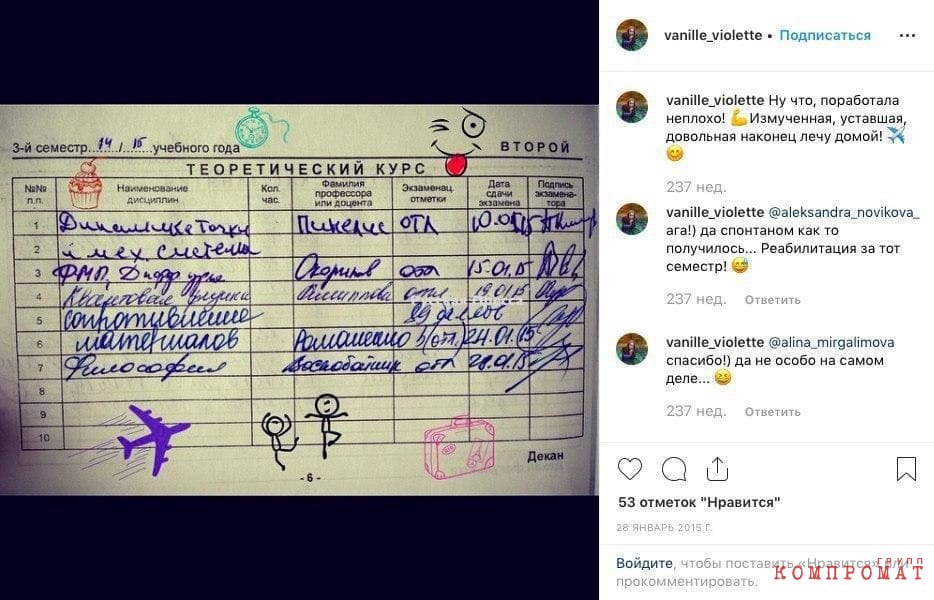 3-й семестр 14 / 15 учебного года
ВТОРОЙ
ТЕОРЕТИЧЕСКИЙ КУРС
№№ п.п.
Наименование дисциплин
Кол. час.
Фамилия профессора или доцента
Экзаменац. отметки
Дата сдачи экзамена
Подпись экзамена-тора
1 Динамика точки отл
2 и мех. системы
3 ФМП, Дифф. отл 15.01.15
4 Квантовая физика отл 19.01.15
5 сопротивление 89 баллов
6 материалов Романенко 5(отл.) 24.01.15
7 Философия отл 28.01.15
8
9
10
Декан
- 6 -
vanille_violette • Подписаться
vanille_violette Ну что, поработала
неплохо! 💪Измученная, уставшая,
довольная наконец лечу домой! ✈️
😊
237 нед.
vanille_violette @aleksandra_novikova_
ага!) да спонтаном как то
получилось... Реабилитация за тот
семестр! 😅
237 нед. Ответить
vanille_violette @alina_mirgalimova
спасибо!) да не особо на самом
деле... 😆
237 нед. Ответить
53 отметок "Нравится"
28 ЯНВАРЬ 2015 Г.
Войдите, чтобы поставить «Нравится» или
прокомментировать.
ГРУПП
КОМПРОМАТ